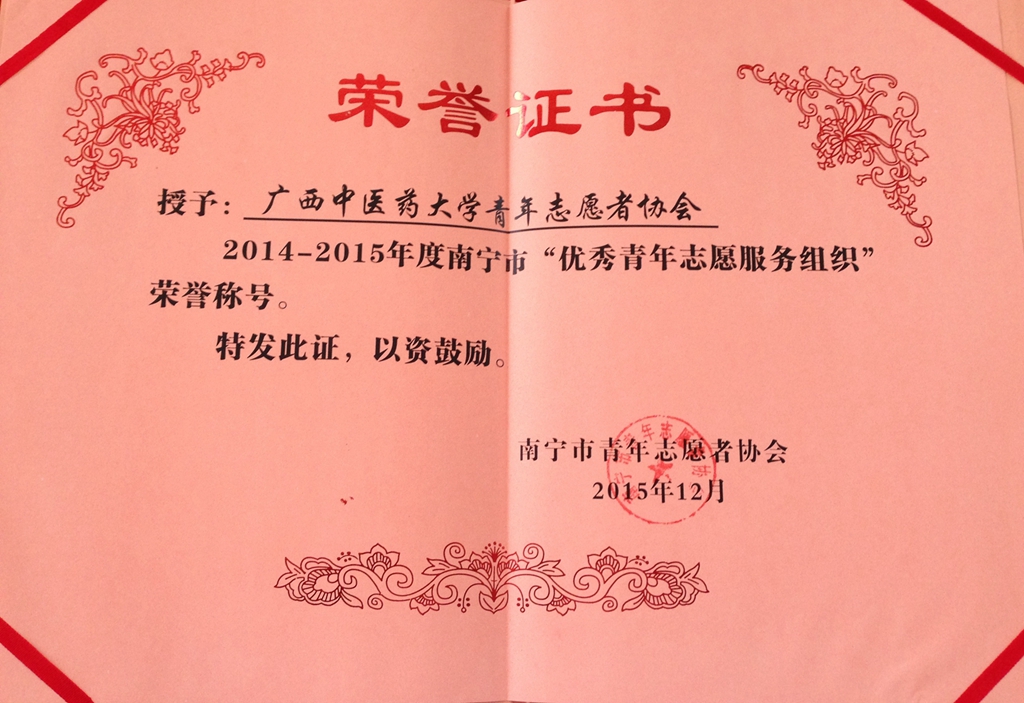 荣誉证书
授予：广西中医药大学青年志愿者协会
2014-2015年度南宁市“优秀青年志愿服务组织”
荣誉称号。
特发此证，以资鼓励。
南宁市青年志愿者协会
2015年12月